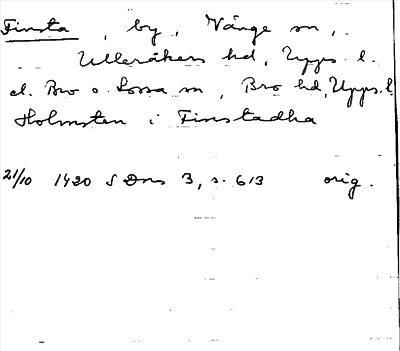 Finsta, by, Vänge sn,
Ulleråkers hd, Upps. l.
el. Bro o. Lossa sn, Bro hd, Upps. l.
Holmsten i Finstadha
21/10 1420 S Dns 3, s. 613 orig.